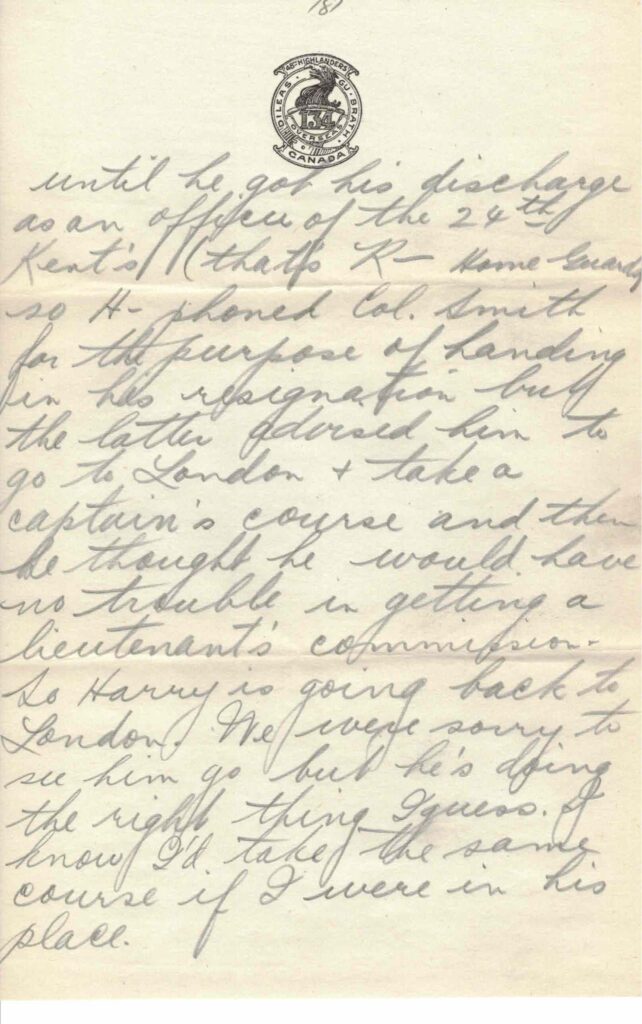 8)
48TH HIGHLANDERS
DILEAS GU BRATH
134
OVERSEAS
CANADA
until he got his discharge
as an officer of the 24th
Kent's (that's R— Home Guard)
so H— phoned Col. Smith
for the purpose of handing
in his resignation but
the latter advised him to
go to London + take a
captain's course and then
he thought he would have
no trouble in getting a
lieutenant's commission.
So Harry is going back to
London. We were sorry to
see him go but he's doing
the right thing I guess. I
know I'd take the same
course if I were in his
place.